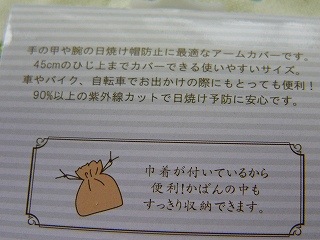 手の甲や腕の日焼け帽防止に最適なアームカバーです。
45cmのひじ上までカバーできる使いやすいサイズ。
車やバイク、自転車でお出かけの際にもとっても便利！
90%以上の紫外線カットで日焼け予防に安心です。
巾着が付いているから
便利!かばんの中も
すっきり収納できます。